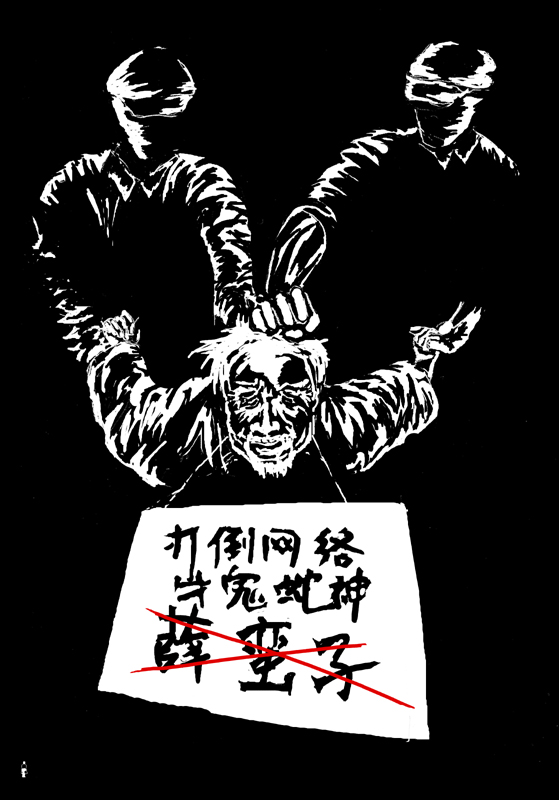 打倒网络
牛鬼蛇神
薛蛮子